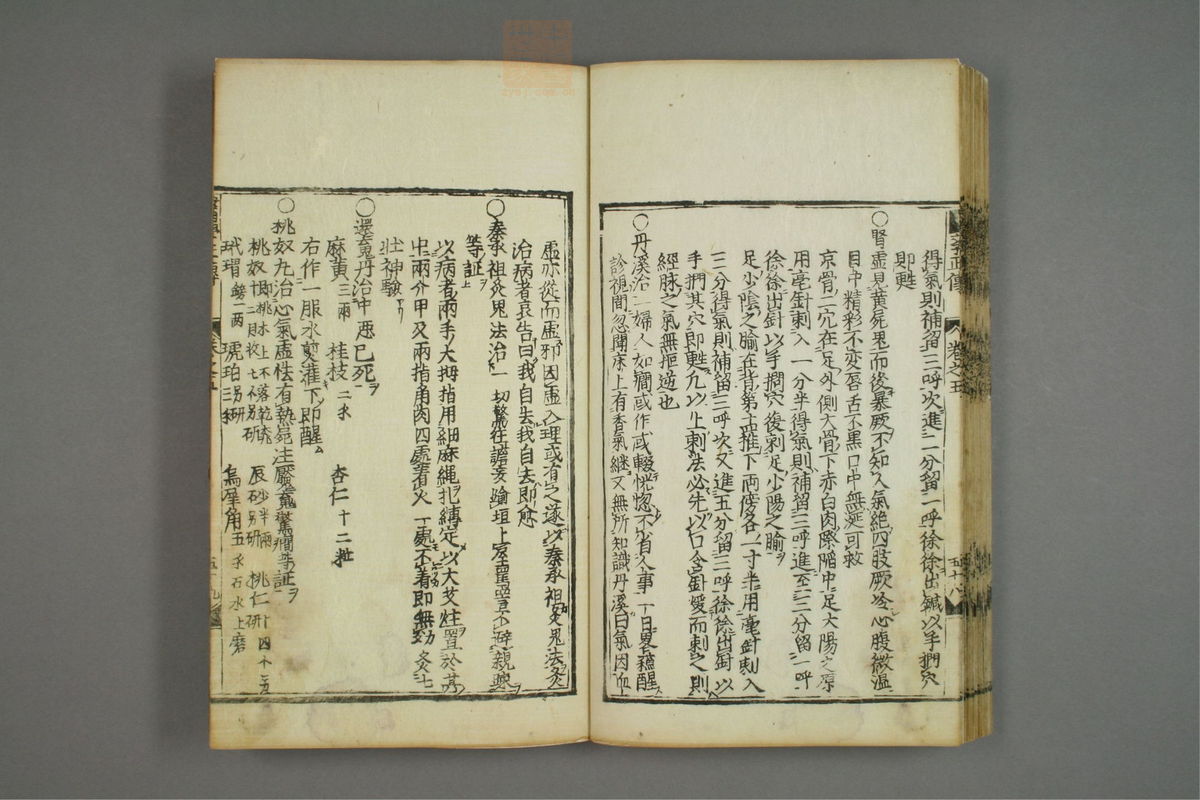 得氣則補留三呼次進二分留一呼徐徐出鍼以手捫穴
即甦
○腎虛見黃屍鬼而後暴厥不知人氣絕四肢厥冷心腹微温
目中精彩不变唇舌不黑口中無涎可救
京骨二穴在足外側大骨下赤白肉際陷中足太陽之原
用毫針刺入一分半得氣則補留三呼進至三分留一呼
徐徐出針以手捫穴後刺足少陽之腧
足少陰之腧在背第十四椎下两傍各一寸半用毫針刺入
三分得氣則補留三呼次又進五分留三呼徐徐出針以
手捫其穴即甦凡以上刺法必先以口含針煖而刺之則
經脉之氣無拒逆也
○丹溪治一婦人如癎或作或輟恍惚不省人事一日畧穌醒
診視間忽聞床上有香氣継又無所知識丹溪曰氣因血
卷之五
五十八
虛亦從而虛邪因虛入理或有之遂以秦承祖灸鬼法灸
治病者哀告曰我自去我自去即愈
○秦承祖灸鬼法治一切驚狂譫妄踰垣上屋罵詈不避親踈
等証
以病者兩手大拇指用細麻繩扎縛定以大艾炷置於其
中兩介甲及兩指角肉四處著火一處不着即無効灸七
壯神驗
○還䰟丹治中惡已死
麻黃三兩 桂枝二戔 杏仁十二粒
右作一服水煎灌下即醒
○桃奴丸治心氣虛怯有熱屍注魘䰟驚癎等証
桃奴十二枚 辰砂半兩另研 桃仁四十五
玳瑁一两 琥珀三戔另研 烏犀角五戔石水上磨
五十九